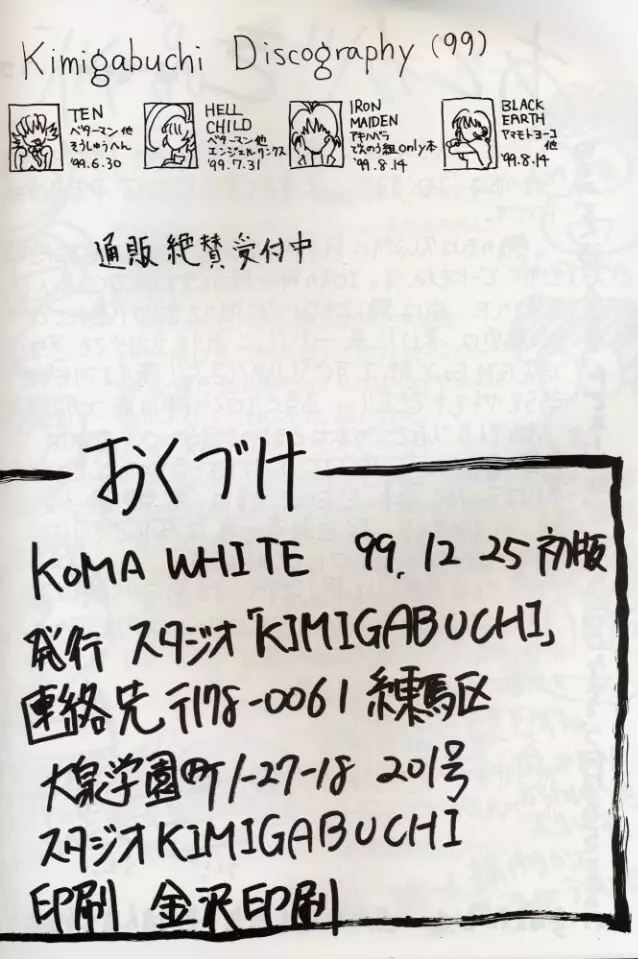 Kimigabuchi Discography (99)
TEN
ベターマン他
そうしゅうへん
'99.6.30
HELL
CHILD
ベターマン他
エンジェルリンクス
'99.7.31
IRON
MAIDEN
アキハバラ
でんのう組only本
'99.8.14
BLACK
EARTH
ヤマモトヨーコ
他
'99.8.14
通販 絶賛受付中
おくづけ
KOMA WHITE 99.12 25 初版
発行 スタジオ「KIMIGABUCHI」
連絡先 〒178-0061 練馬区
大泉学園町1-27-18 201号
スタジオKIMIGABUCHI
印刷 金沢印刷